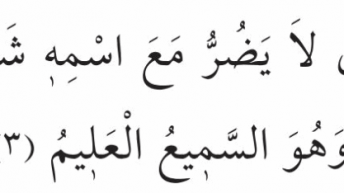 لاَ يَضُرُّ مَعَ اسْمِهٖ
وَهُوَ السَّمٖيعُ الْعَلٖيمُ (٣)